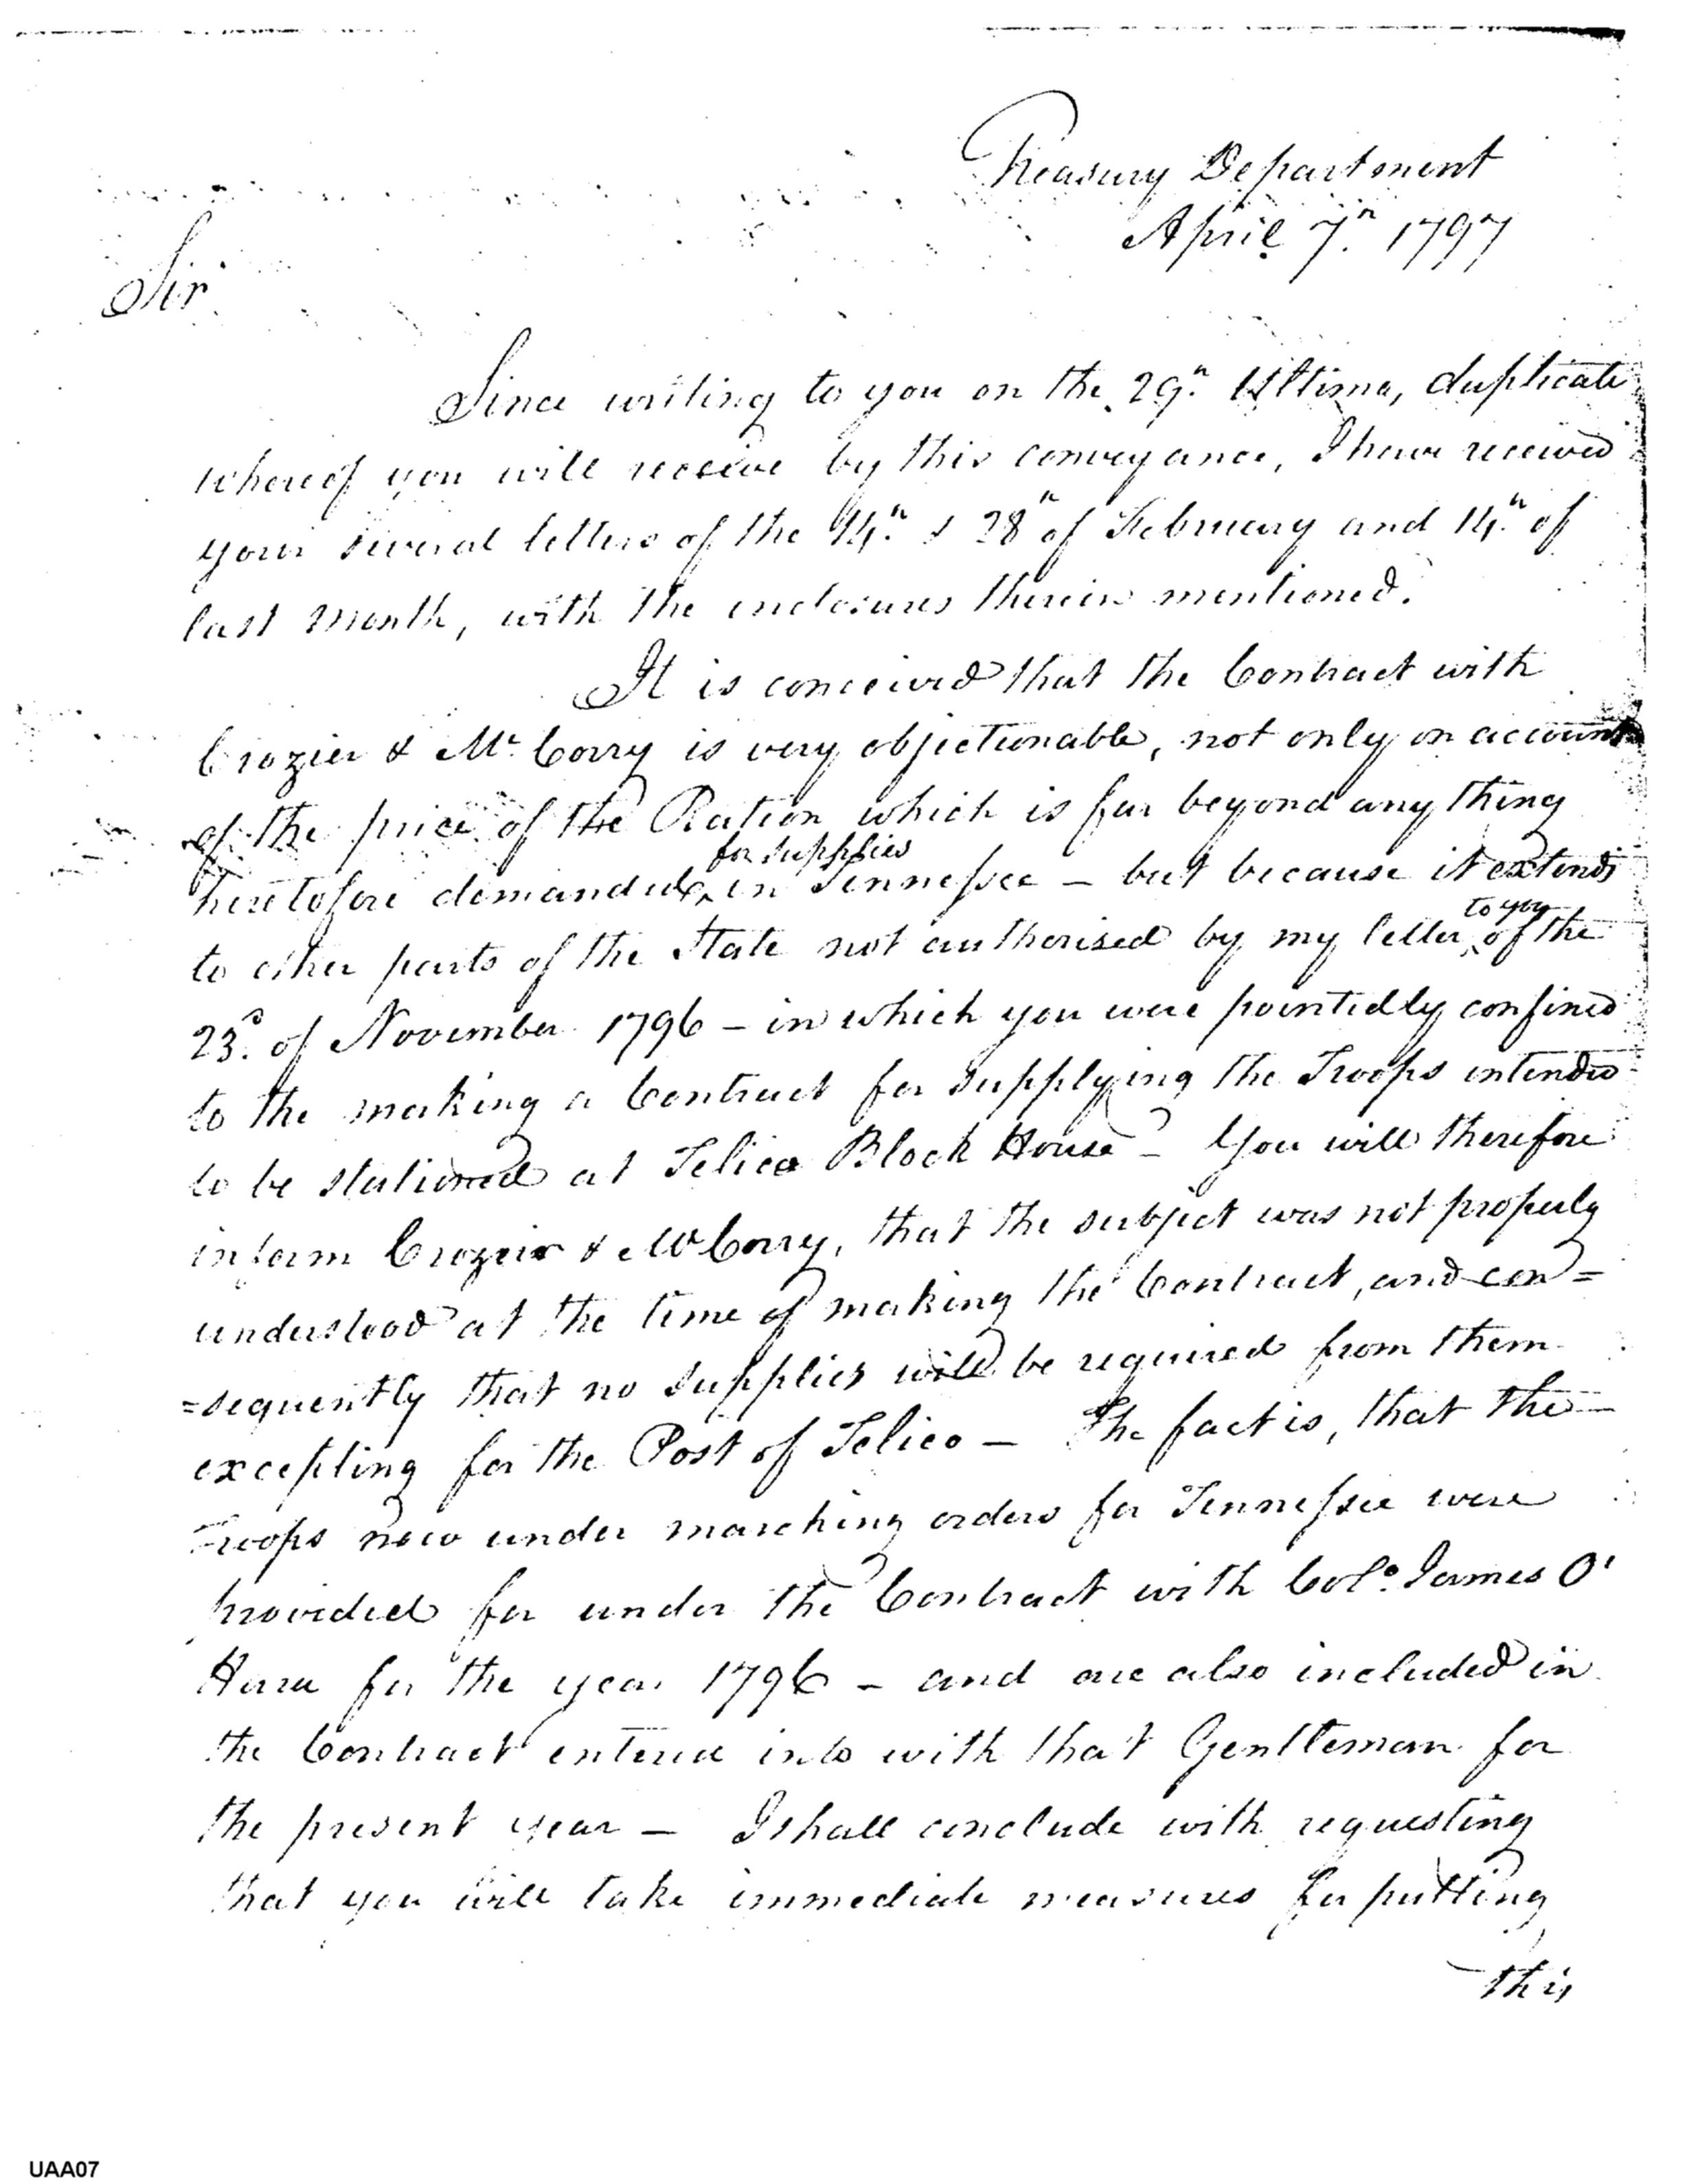 Treasury Department
April 7th. 1797
Sir
Since writing to you on the 29th. Ultimo, duplicate
whereof you will receive by this conveyance, I have received
your several letters of the 14th. & 28th of February and 14th. of
last month, with the enclosures therein mentioned.
It is conceived that the Contract with
Crozier & Mc. Corry is very objectionable, not only on account
of the price of the Ration which is far beyond any thing
for supplies
heretofore demanded, in Tennessee – but because it extends
to you
to other parts of the State not authorised by my letter, of the
23d. of November 1796 – in which you were pointedly confined
to the making a Contract for supplying the Troops intended
to be stationed at Telico Block House – You will therefore
inform Crozier & McCorry, that the subject was not properly
understood at the time of making the Contract, and con=
=sequently that no supplies will be required from them
excepting for the Post of Telico – The fact is, that the
Troops now under marching orders for Tennessee were
provided for under the Contract with Colo. James O'
Hara for the year 1796 – and are also included in
the Contract entered into with that Gentleman for
the present year – I shall conclude with requesting
that you will take immediate measures for putting
this
UAA07